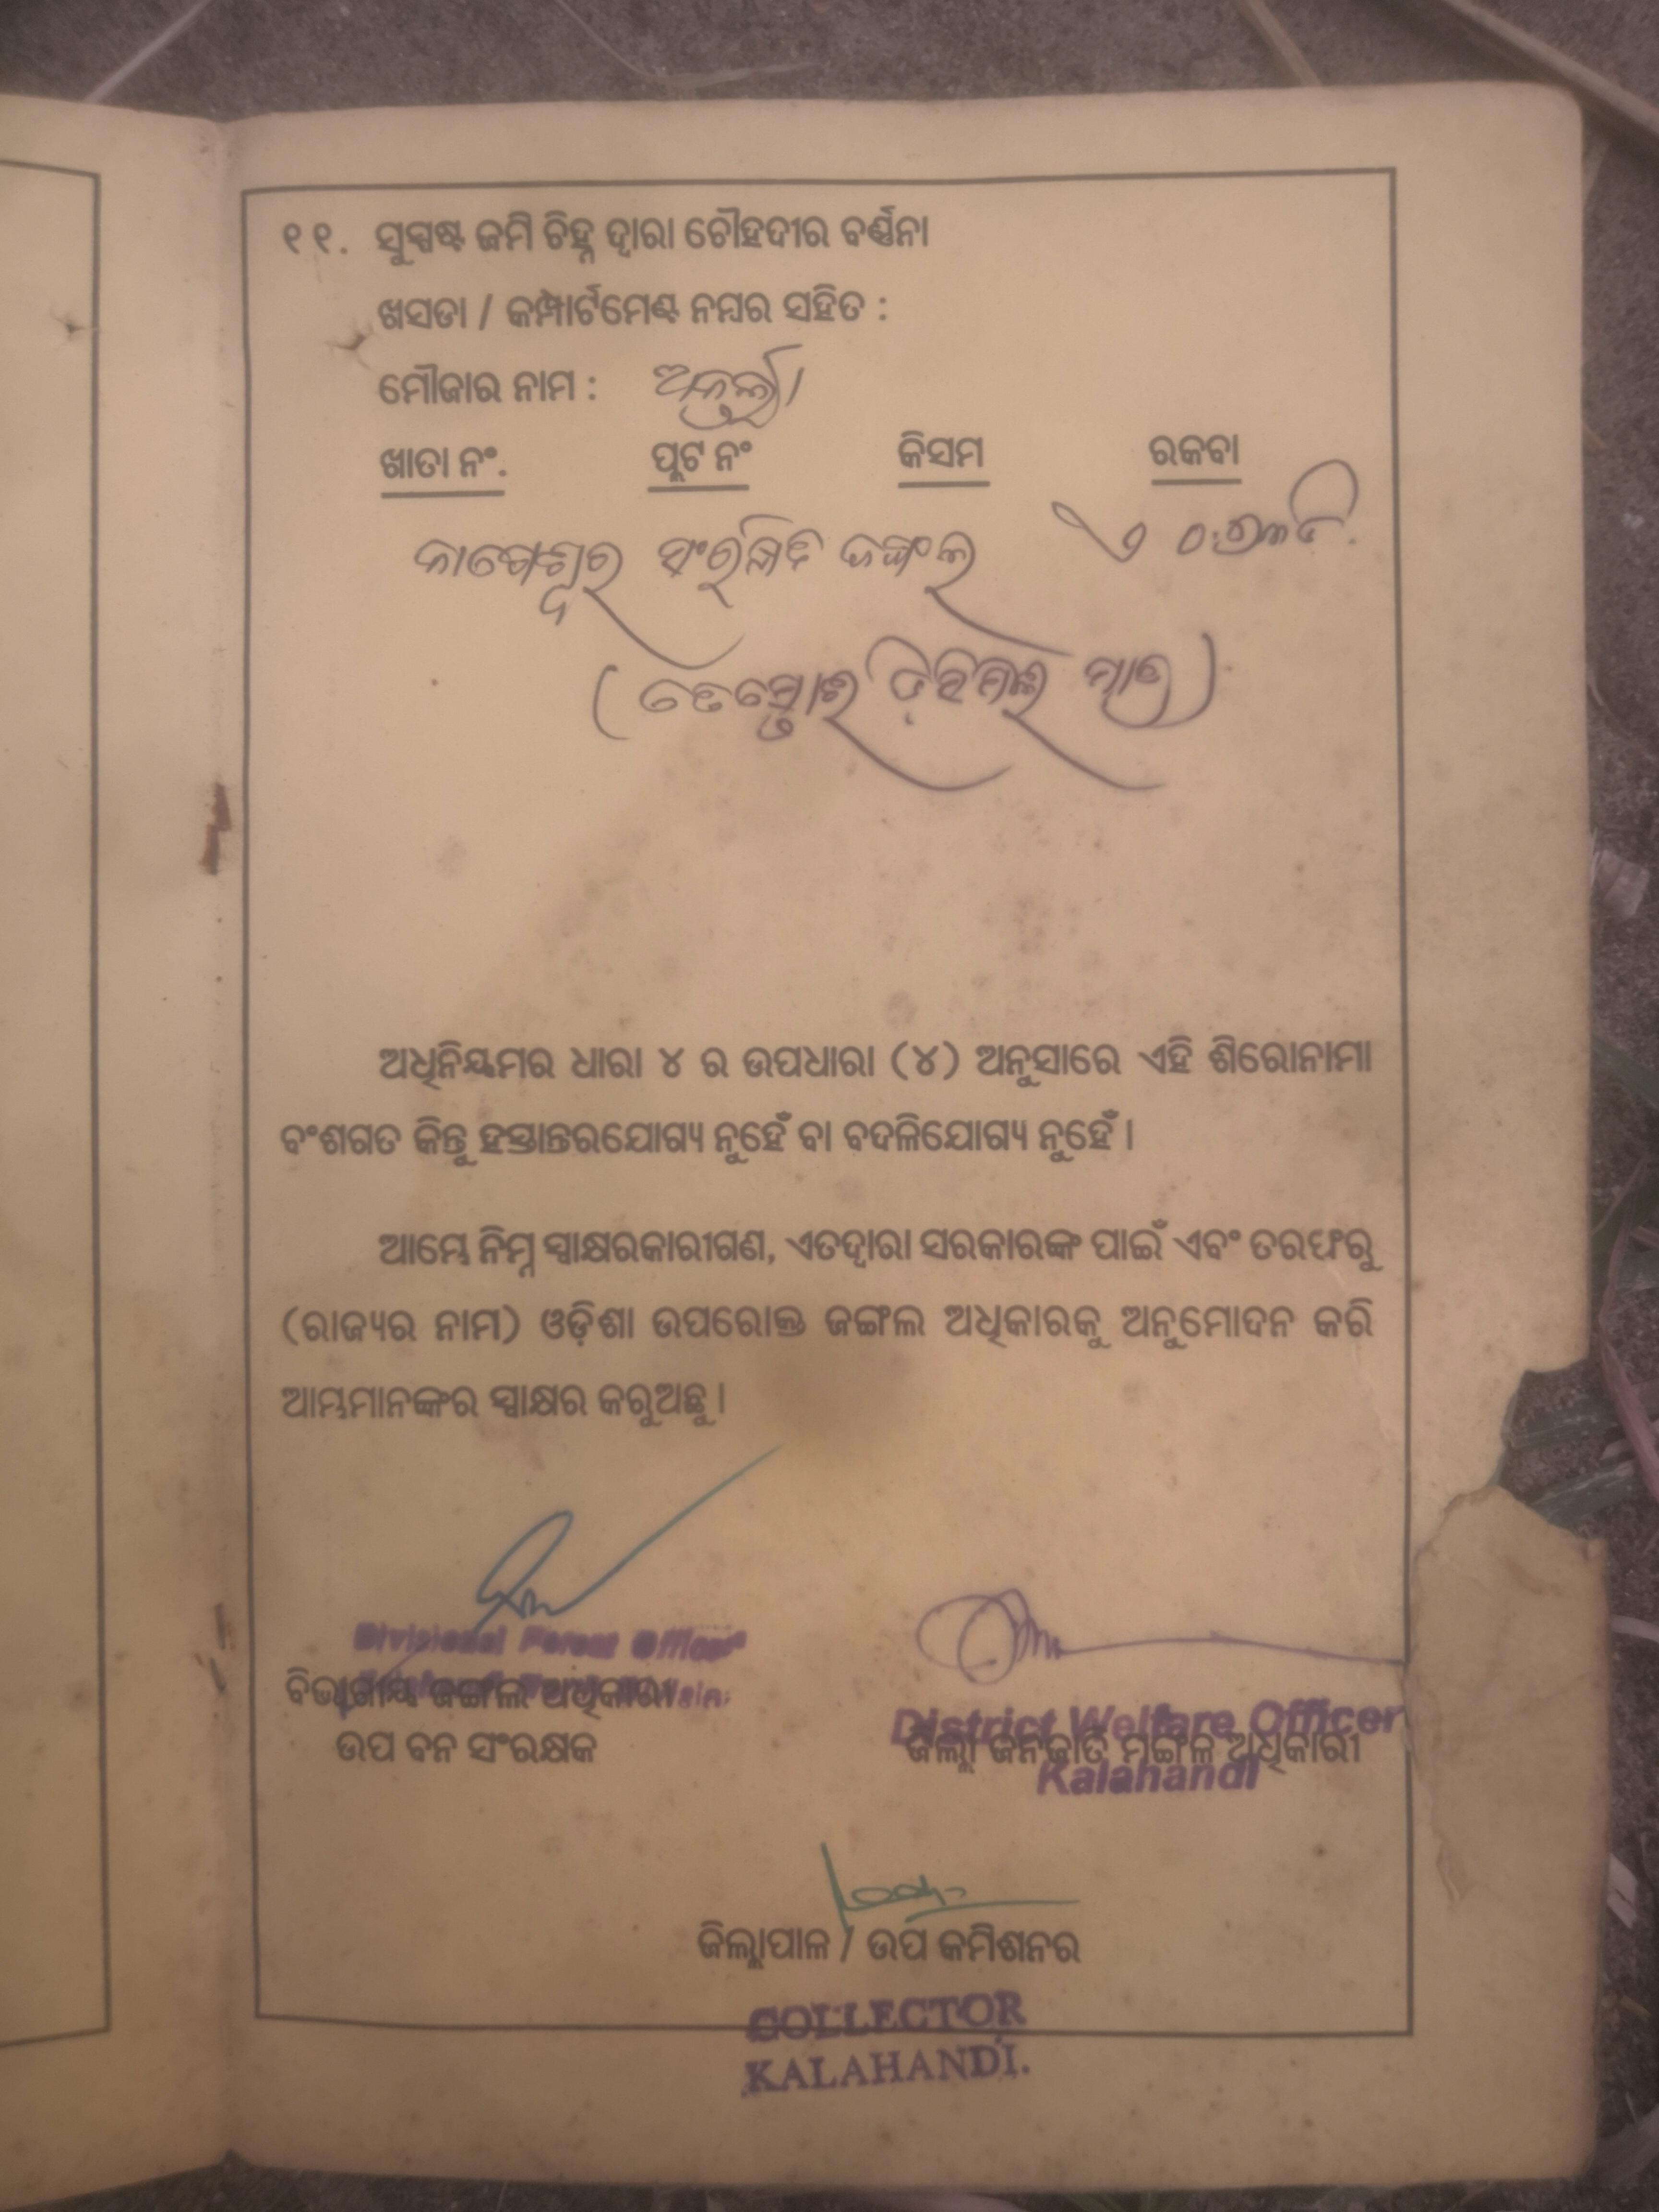 ୧୧. ସୁସ୍ପଷ୍ଟ ଜମି ଚିହ୍ନ ଦ୍ୱାରା ଚୌହଦୀର ବର୍ଣ୍ଣନା
ଖସଡା / କମ୍ପାର୍ଟମେଣ୍ଟ ନମ୍ବର ସହିତ :
ମୌଜାର ନାମ :
ଖାତା ନଂ. ପ୍ଲଟ ନଂ କିସମ ରକବା
ନାଗେଶ୍ୱର ସଂରକ୍ଷିତ ଜଙ୍ଗଲ
ଅଧିନିୟମର ଧାରା ୪ ର ଉପଧାରା (୪) ଅନୁସାରେ ଏହି ଶିରୋନାମା
ବଂଶଗତ କିନ୍ତୁ ହସ୍ତାନ୍ତରଯୋଗ୍ୟ ନୁହେଁ ବା ବଦଳିଯୋଗ୍ୟ ନୁହେଁ ।
ଆମ୍ଭେ ନିମ୍ନ ସ୍ୱାକ୍ଷରକାରୀଗଣ, ଏତଦ୍ୱାରା ସରକାରଙ୍କ ପାଇଁ ଏବଂ ତରଫରୁ
(ରାଜ୍ୟର ନାମ) ଓଡ଼ିଶା ଉପରୋକ୍ତ ଜଙ୍ଗଲ ଅଧିକାରକୁ ଅନୁମୋଦନ କରି
ଆମ୍ଭମାନଙ୍କର ସ୍ୱାକ୍ଷର କରୁଅଛୁ ।
Divisional Forest Officer
ବିଭାଗୀୟ ଜଙ୍ଗଲ ଅଧିକାରୀ
ଉପ ବନ ସଂରକ୍ଷକ
District Welfare Officer
ଜିଲ୍ଲା ଜନଜାତି ମଙ୍ଗଳ ଅଧିକାରୀ
Kalahandi
ଜିଲ୍ଲାପାଳ / ଉପ କମିଶନର
COLLECTOR
KALAHANDI.